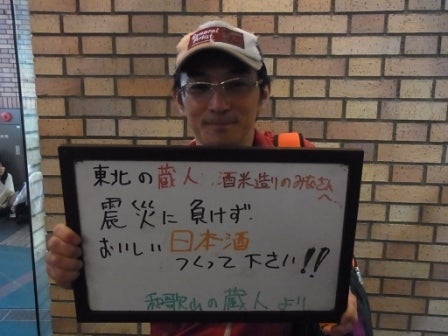 東北の蔵人、酒米造りのみなさんへ
震災に負けず
おいしい日本酒
つくって下さい!!
和歌山の蔵人より